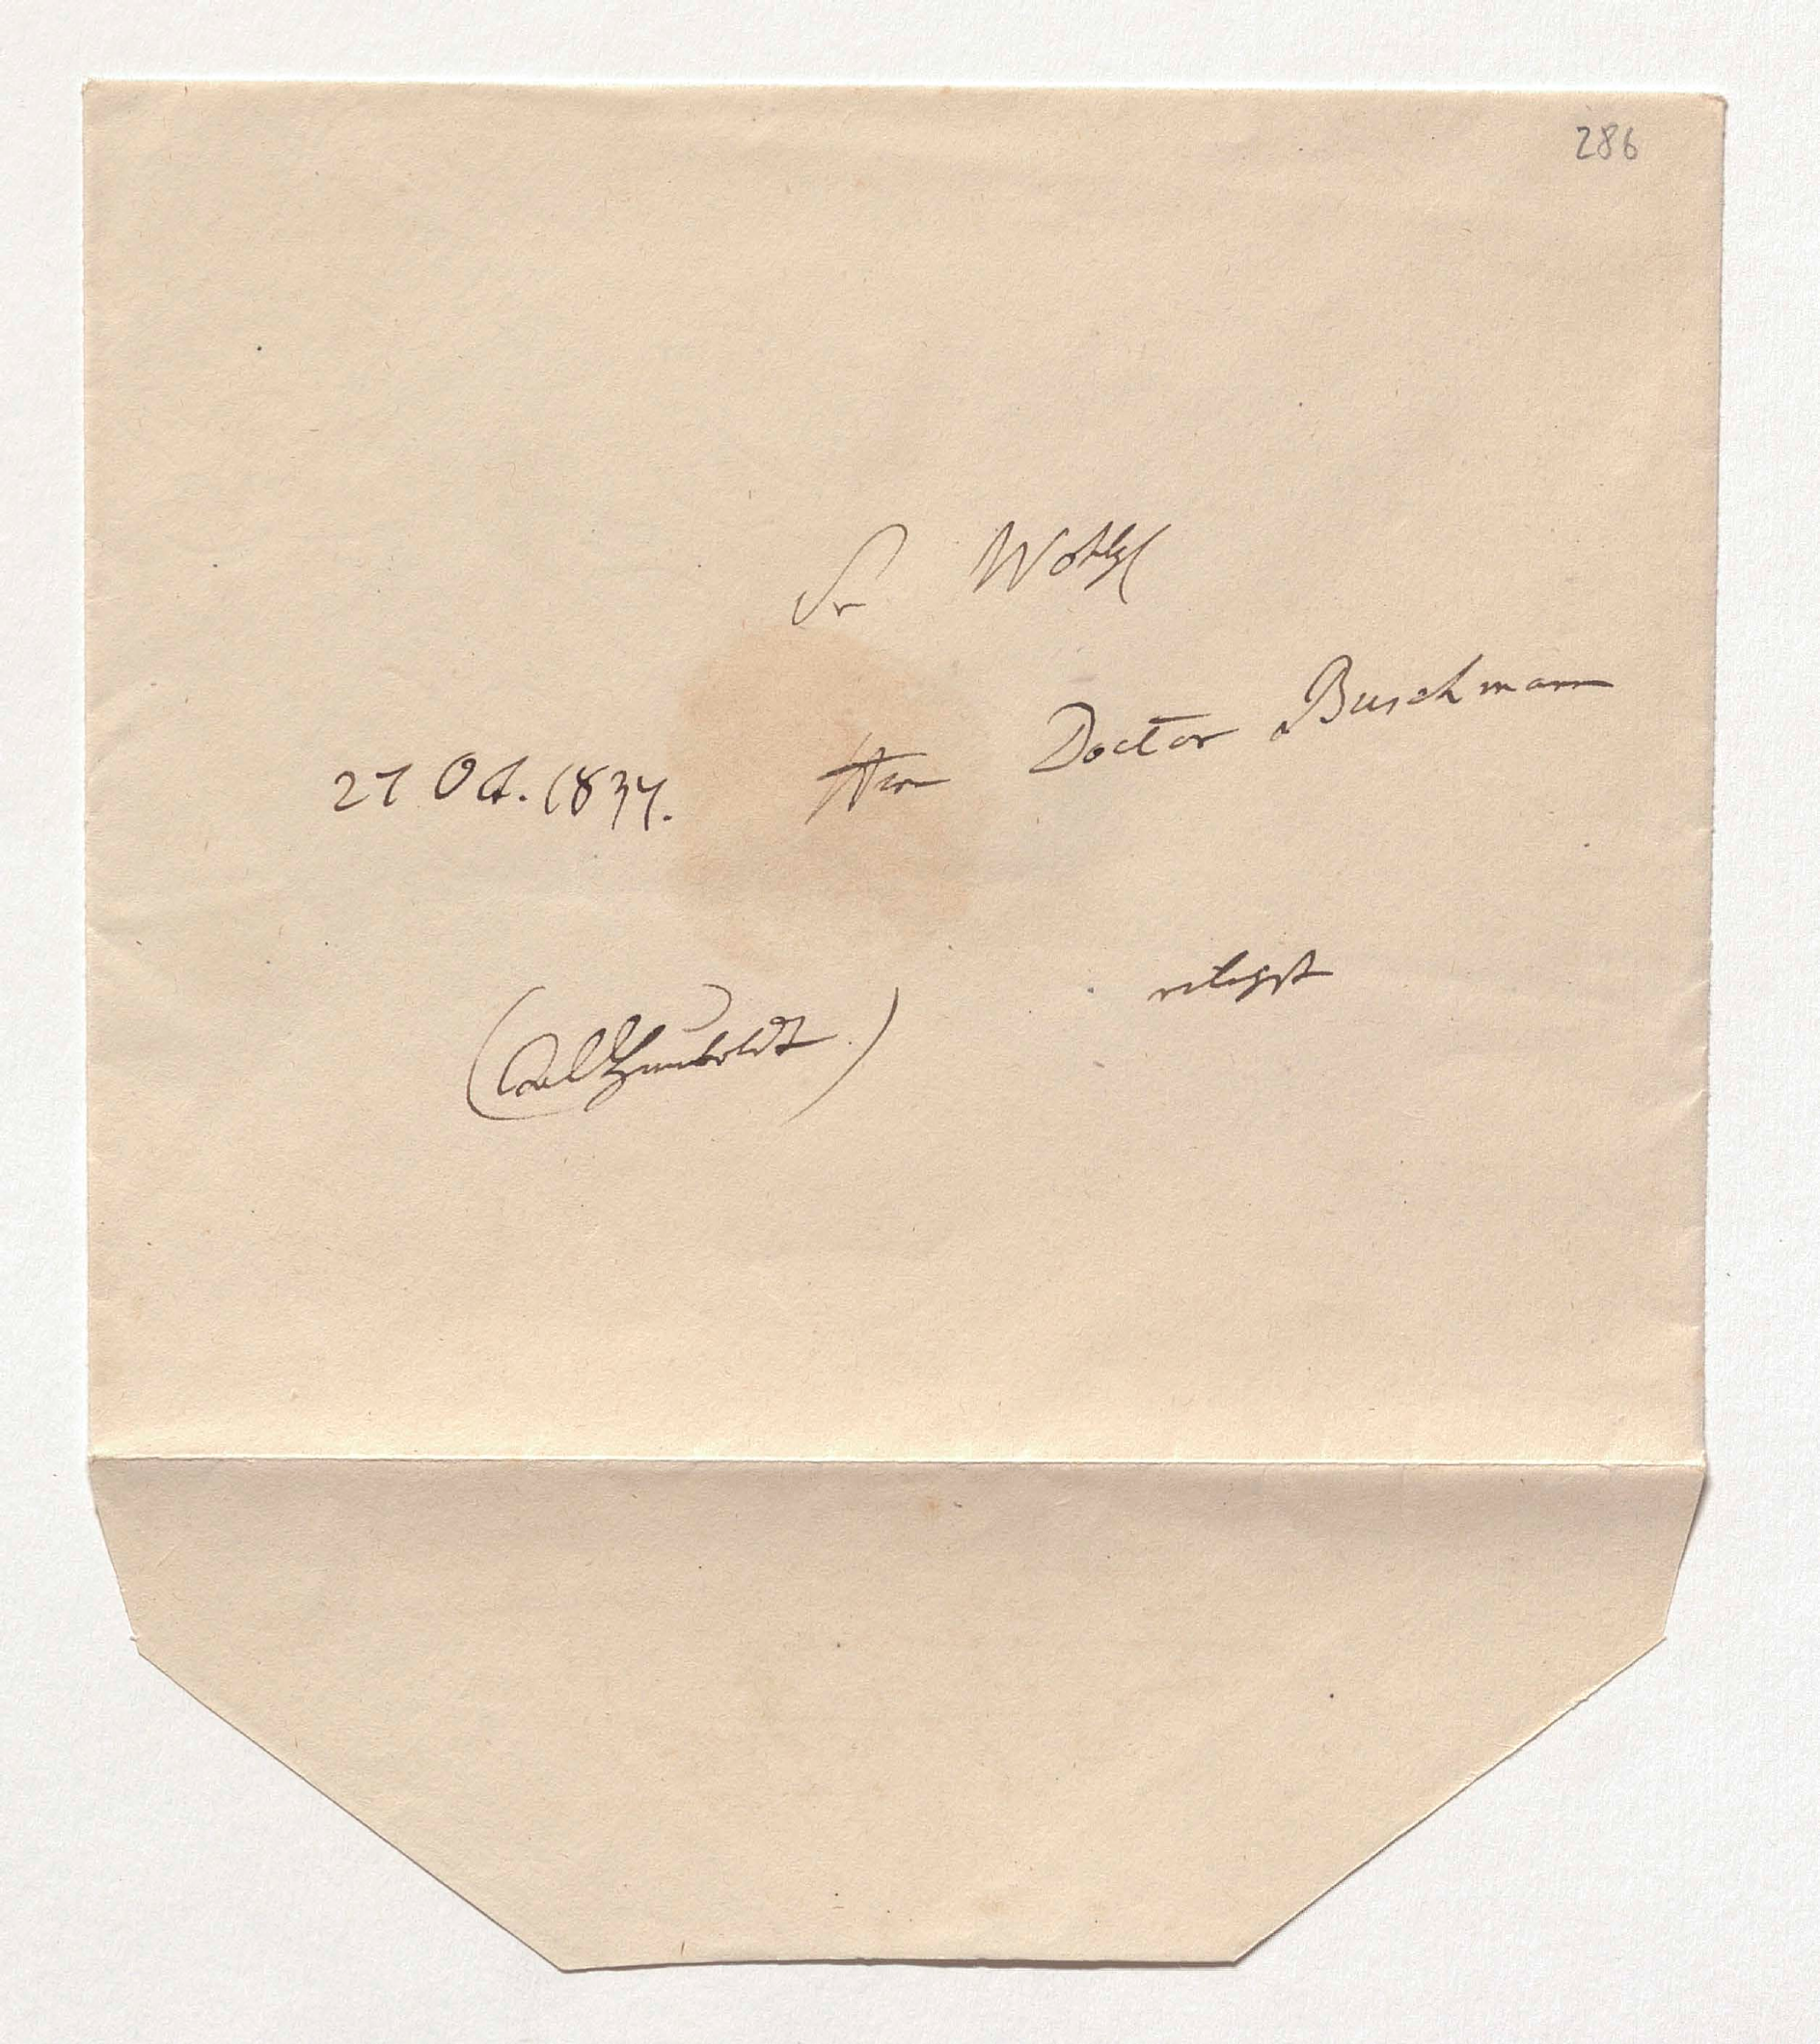 286
Sr Wohlg
27 Oct. 1834. Hrn Doctor Buschmann
eiligst
(AlHumboldt.)